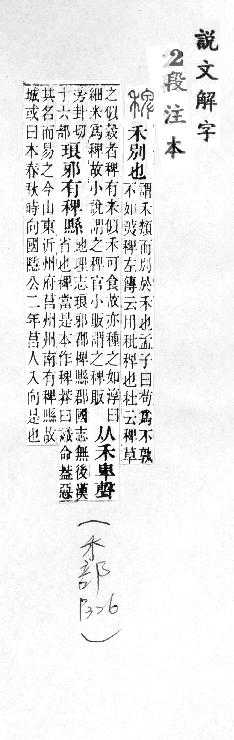 說文解字
2段注本
禾別也
謂禾類而別於禾也孟子曰苟爲不孰
不如荑稗左傳云用秕稗也杜云稗草
之似穀者稗有米似禾可食故亦種之如淳曰
細米爲稗故小說謂之稗官小販謂之稗販
从禾卑聲
旁卦切
十六部
琅邪有稗縣
地理志琅邪郡稗縣郡國志無後漢
省也稗當是本作粺莽曰識命葢惡
其名而易之今山東沂州府莒州州南有稗縣故
城或曰本春秋時向國隱公二年莒人入向是也
(禾部 P326)